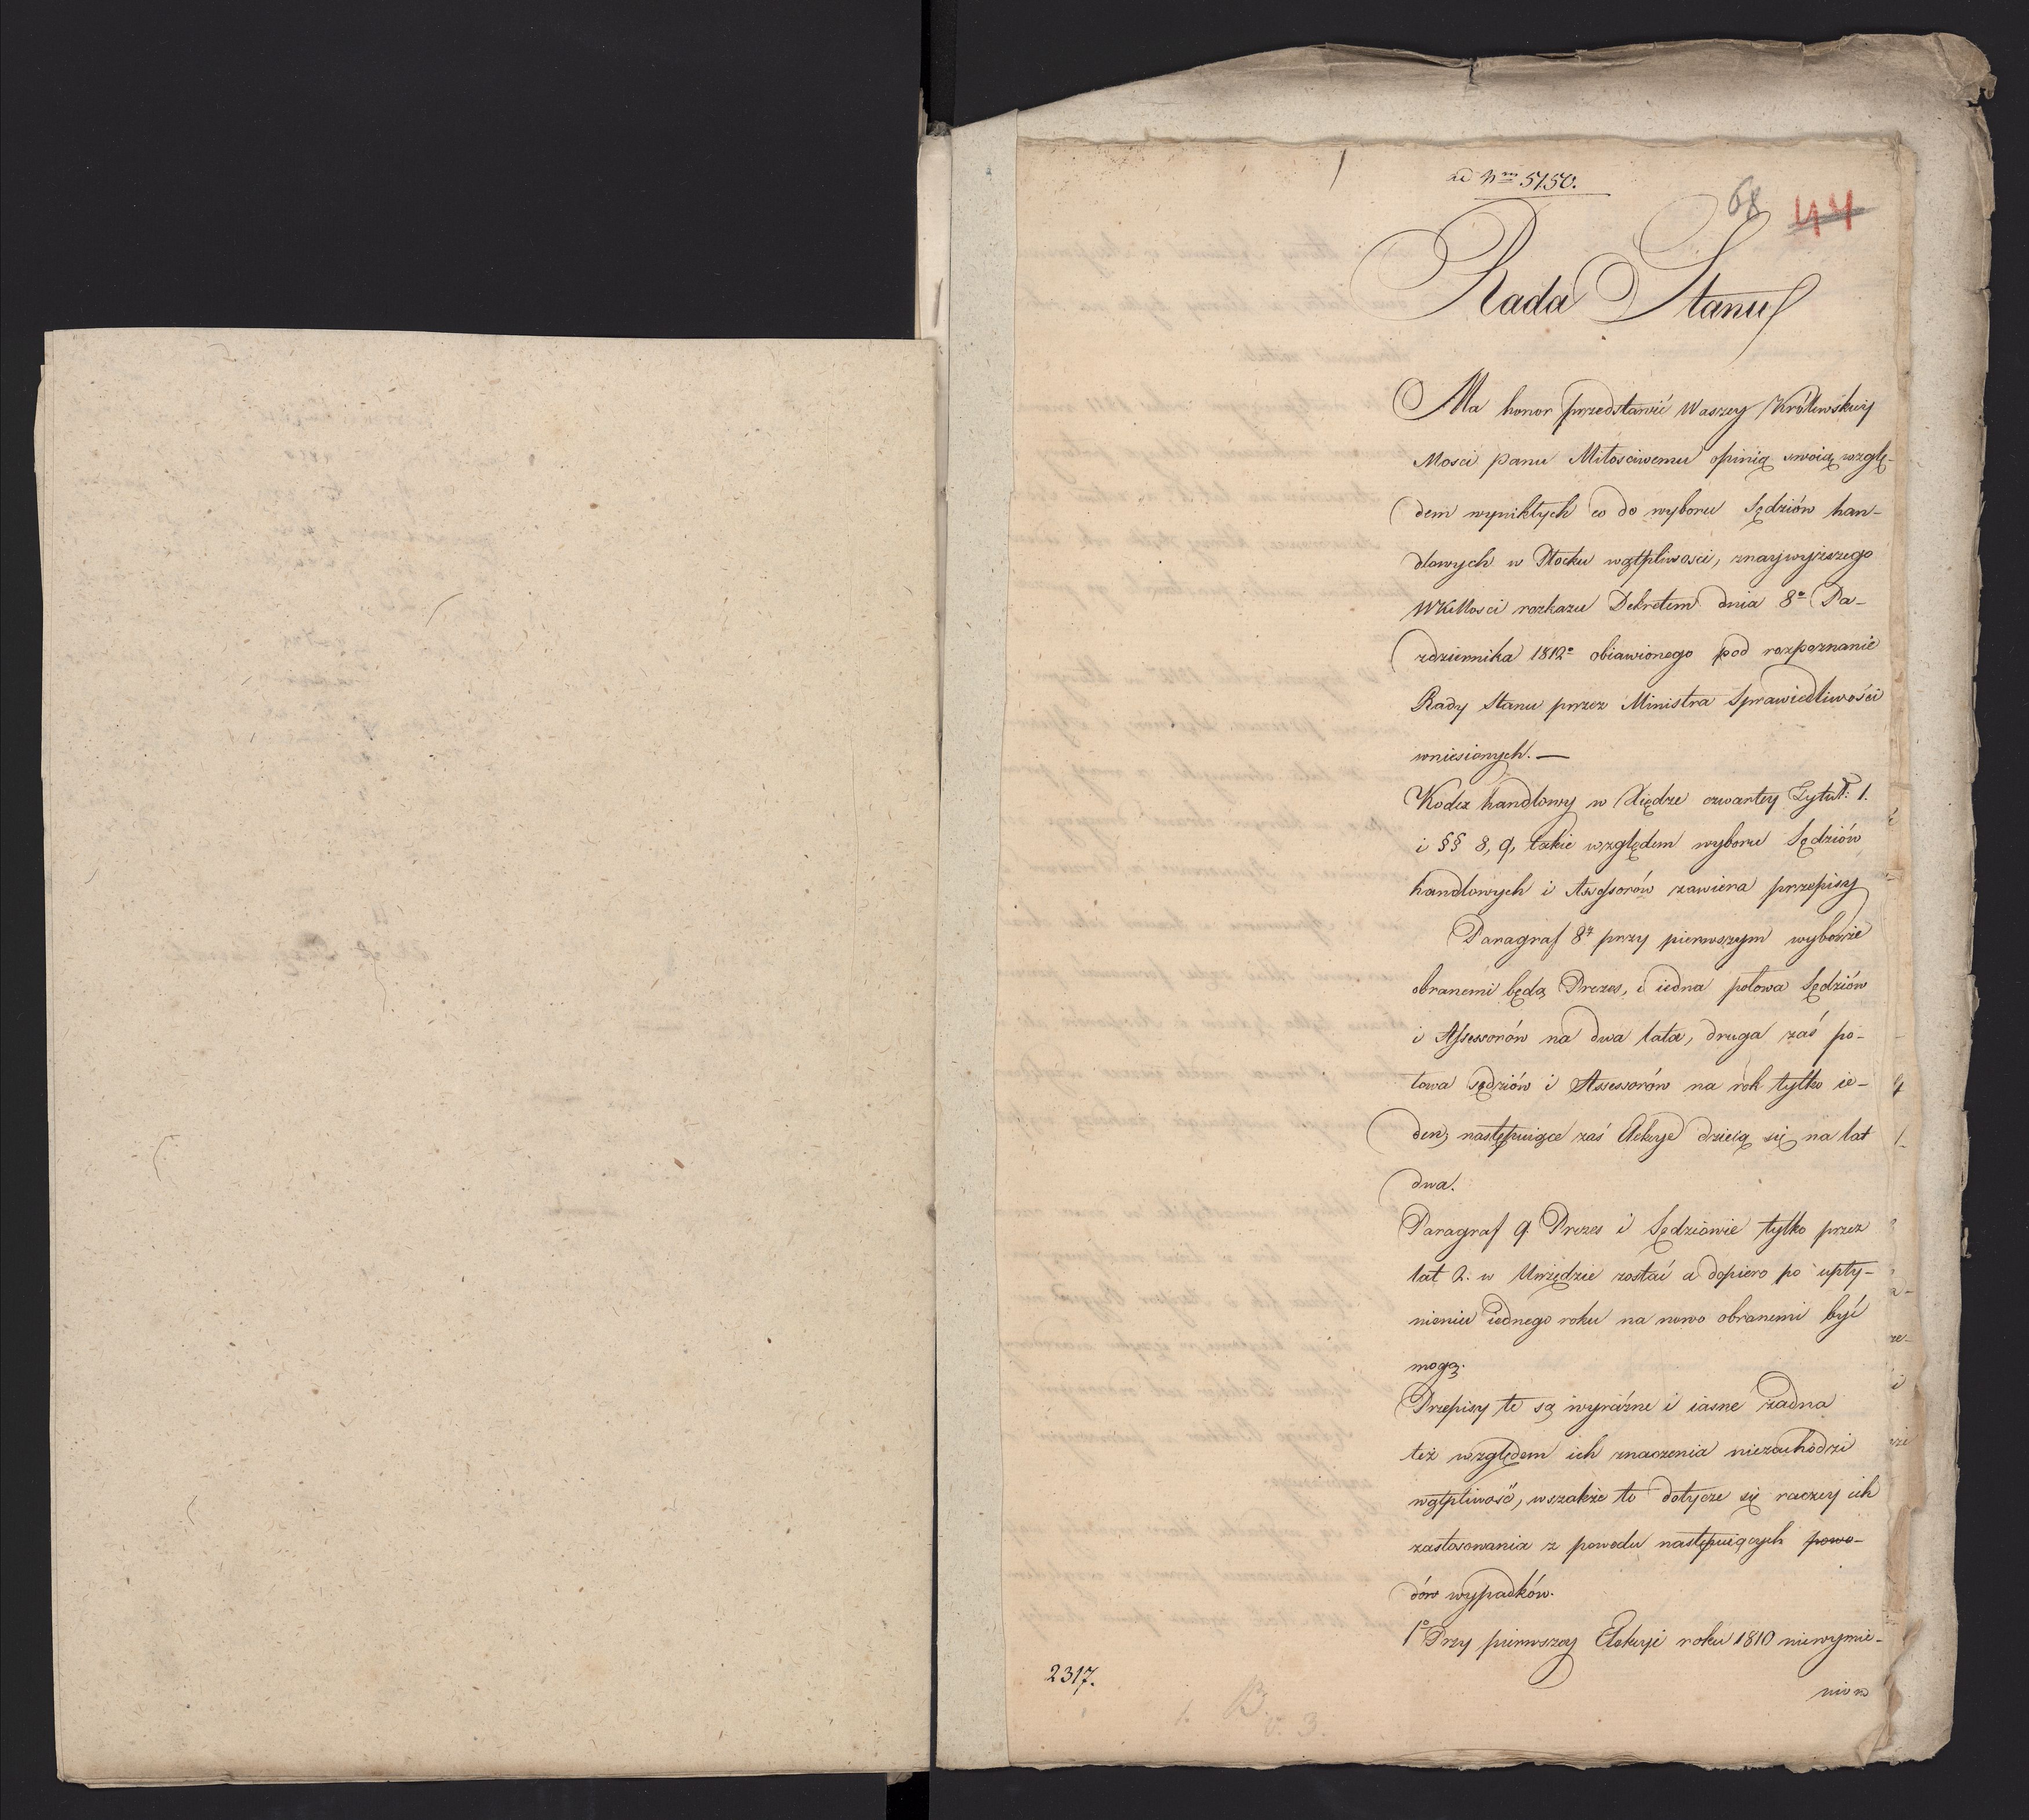 ad Nrm 5150.
68 44
Rada Stanu
Ma honor przedstawić Waszey Królewskiey
Mosci panu Miłościwemu opinią swoią wzglę-
dem wynikłych co do wyboru Sędziów han-
dlowych w Płocku wątpliwości, znaywyższego
WKMosci rozkazu Dekretem dnia 8o Pa-
zdziernika 1812o obiawionego pod rozpoznanie
Rady Stanu przez Ministra Sprawiedliwości
wniesionych. —
Kodex handlowy w Xiędze czwartey Tytuł: 1.
i §§ 8, 9, takie względem wyboru Sędziów
handlowych i Assessorów zawiera przepisy
Paragraf 8y przy pierwszym wyborze
obranemi będą Prezes, i iedna połowa Sędziów
i Assessorów na dwa lata, druga zaś po-
łowa sędziów i Assessorów na rok tylko ie-
den, następuiące zaś Elekcye dzieią się na lat
dwa.
Paragraf 9 Prezes i Sędziowie tylko przez
lat 2. w Urzędzie zostać a dopiero po upły-
nieniu iednego roku na nowo obranemi być
mogą.
Przepisy te są wyraźne i iasne żadna
też względem ich znaczenia niezachodzi
wątpliwość, wszakże to dotycze się raczey ich
zastosowania z powodu następuiących powo-
dów wypadków.
1o Przy pierwszey Elekcyi roku 1810 niewymie-
nion
2317.
1. B.
v. 3.